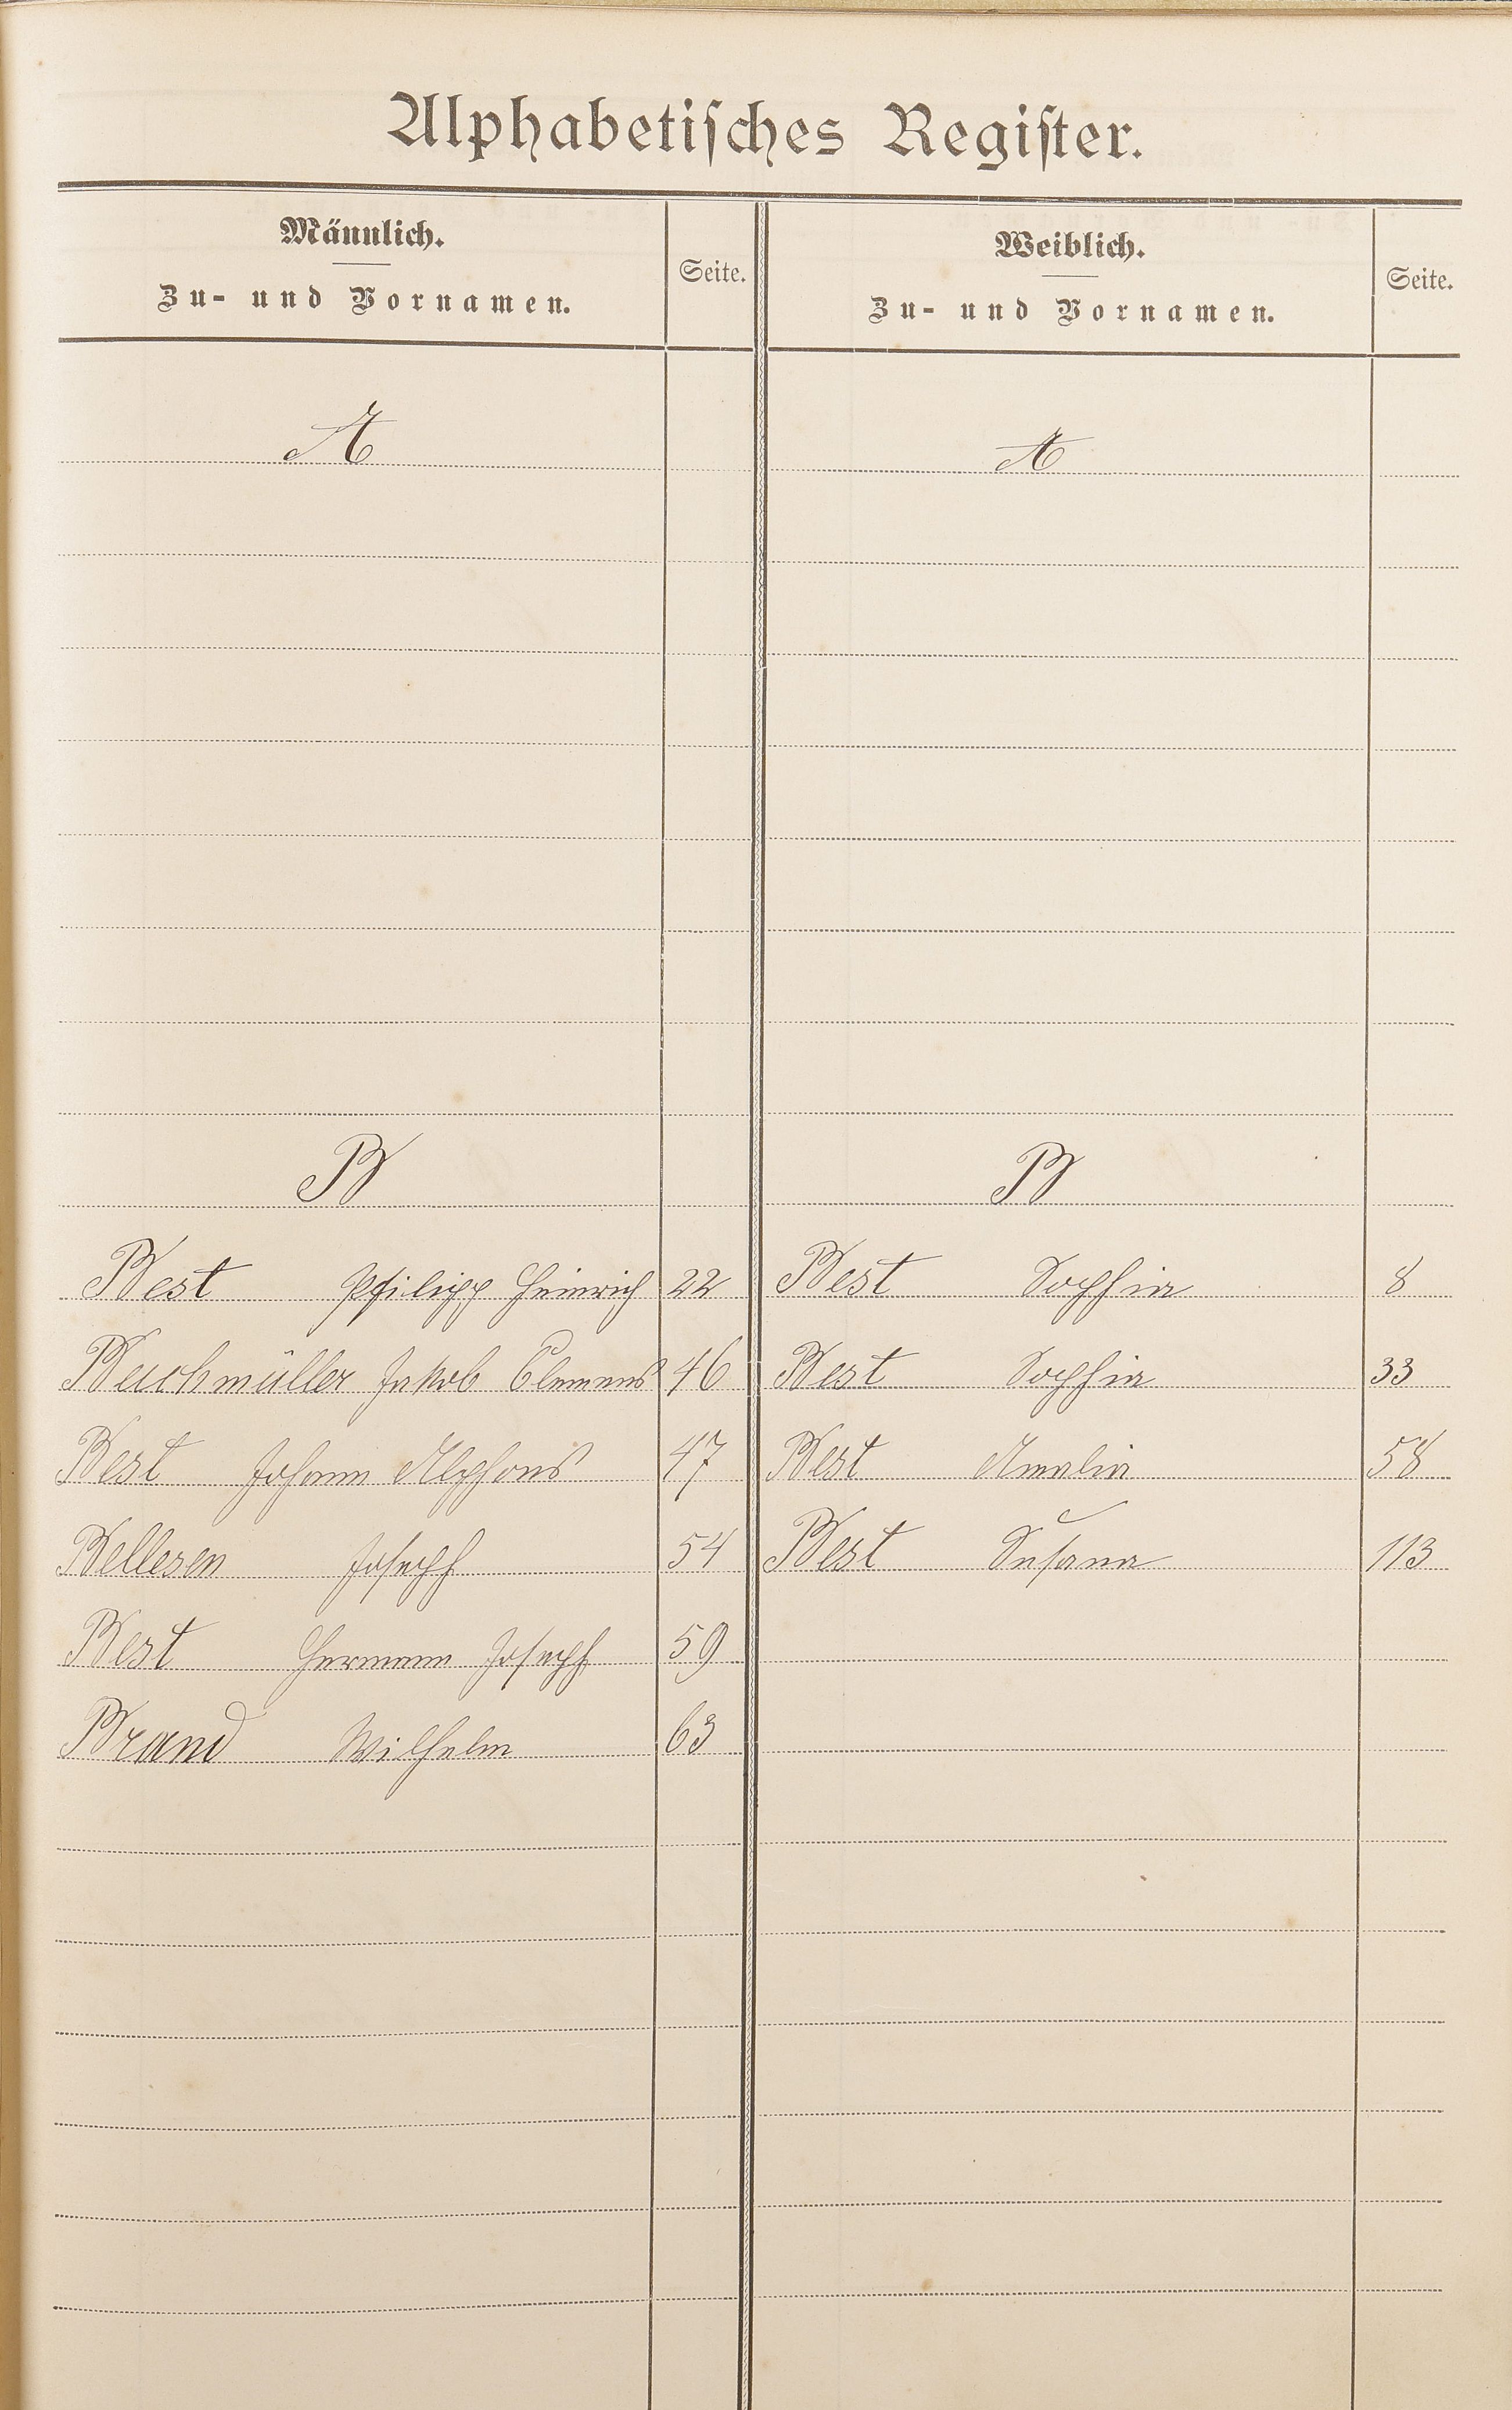 Alphabetisches Register.
Männlich. Seite. Weiblich. Seite.
Zu- und Vornamen. Zu- und Vornamen.
A A
B B
Best Philipp Heinrich 22 Best Sophia 8
Buchmüller Jakob Clemens 46 Best Sophia 33
Best Johann Alphons 47 Best Amalia 58
Bellesen Joseph 54 Best Susana 113
Best Hermann Joseph 59
Brand Wilhelm 63